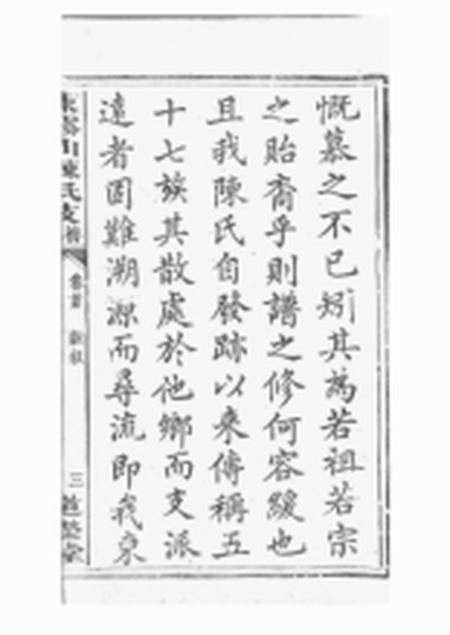 慨慕之不已矧其為若祖若宗
之貽裔乎則譜之修何容緩也
且我陳氏自發跡以來傳稱五
十七族其散處於他鄉而支派
遠者固難溯源而尋流即我東
山陳氏支譜
卷首
三